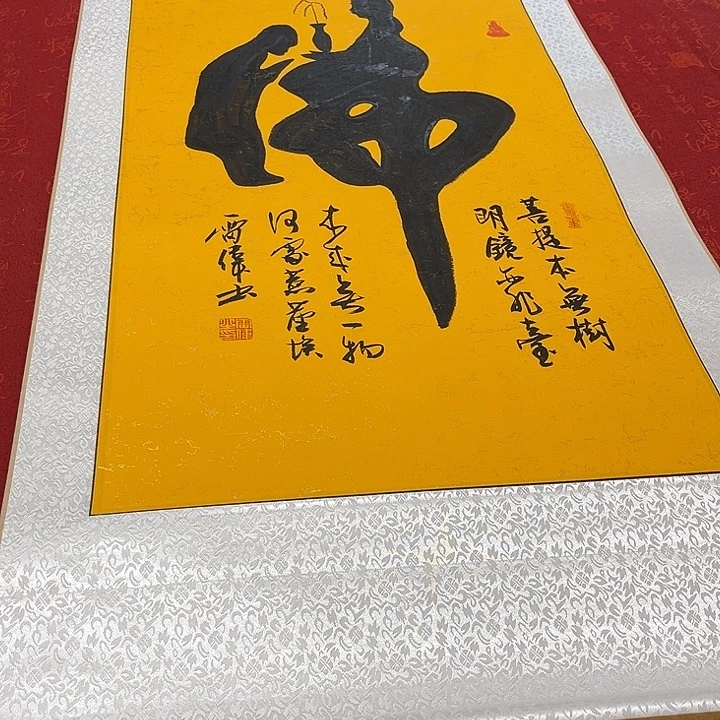 佛
菩提本無樹
明鏡亦非臺
本來無一物
何處惹塵埃